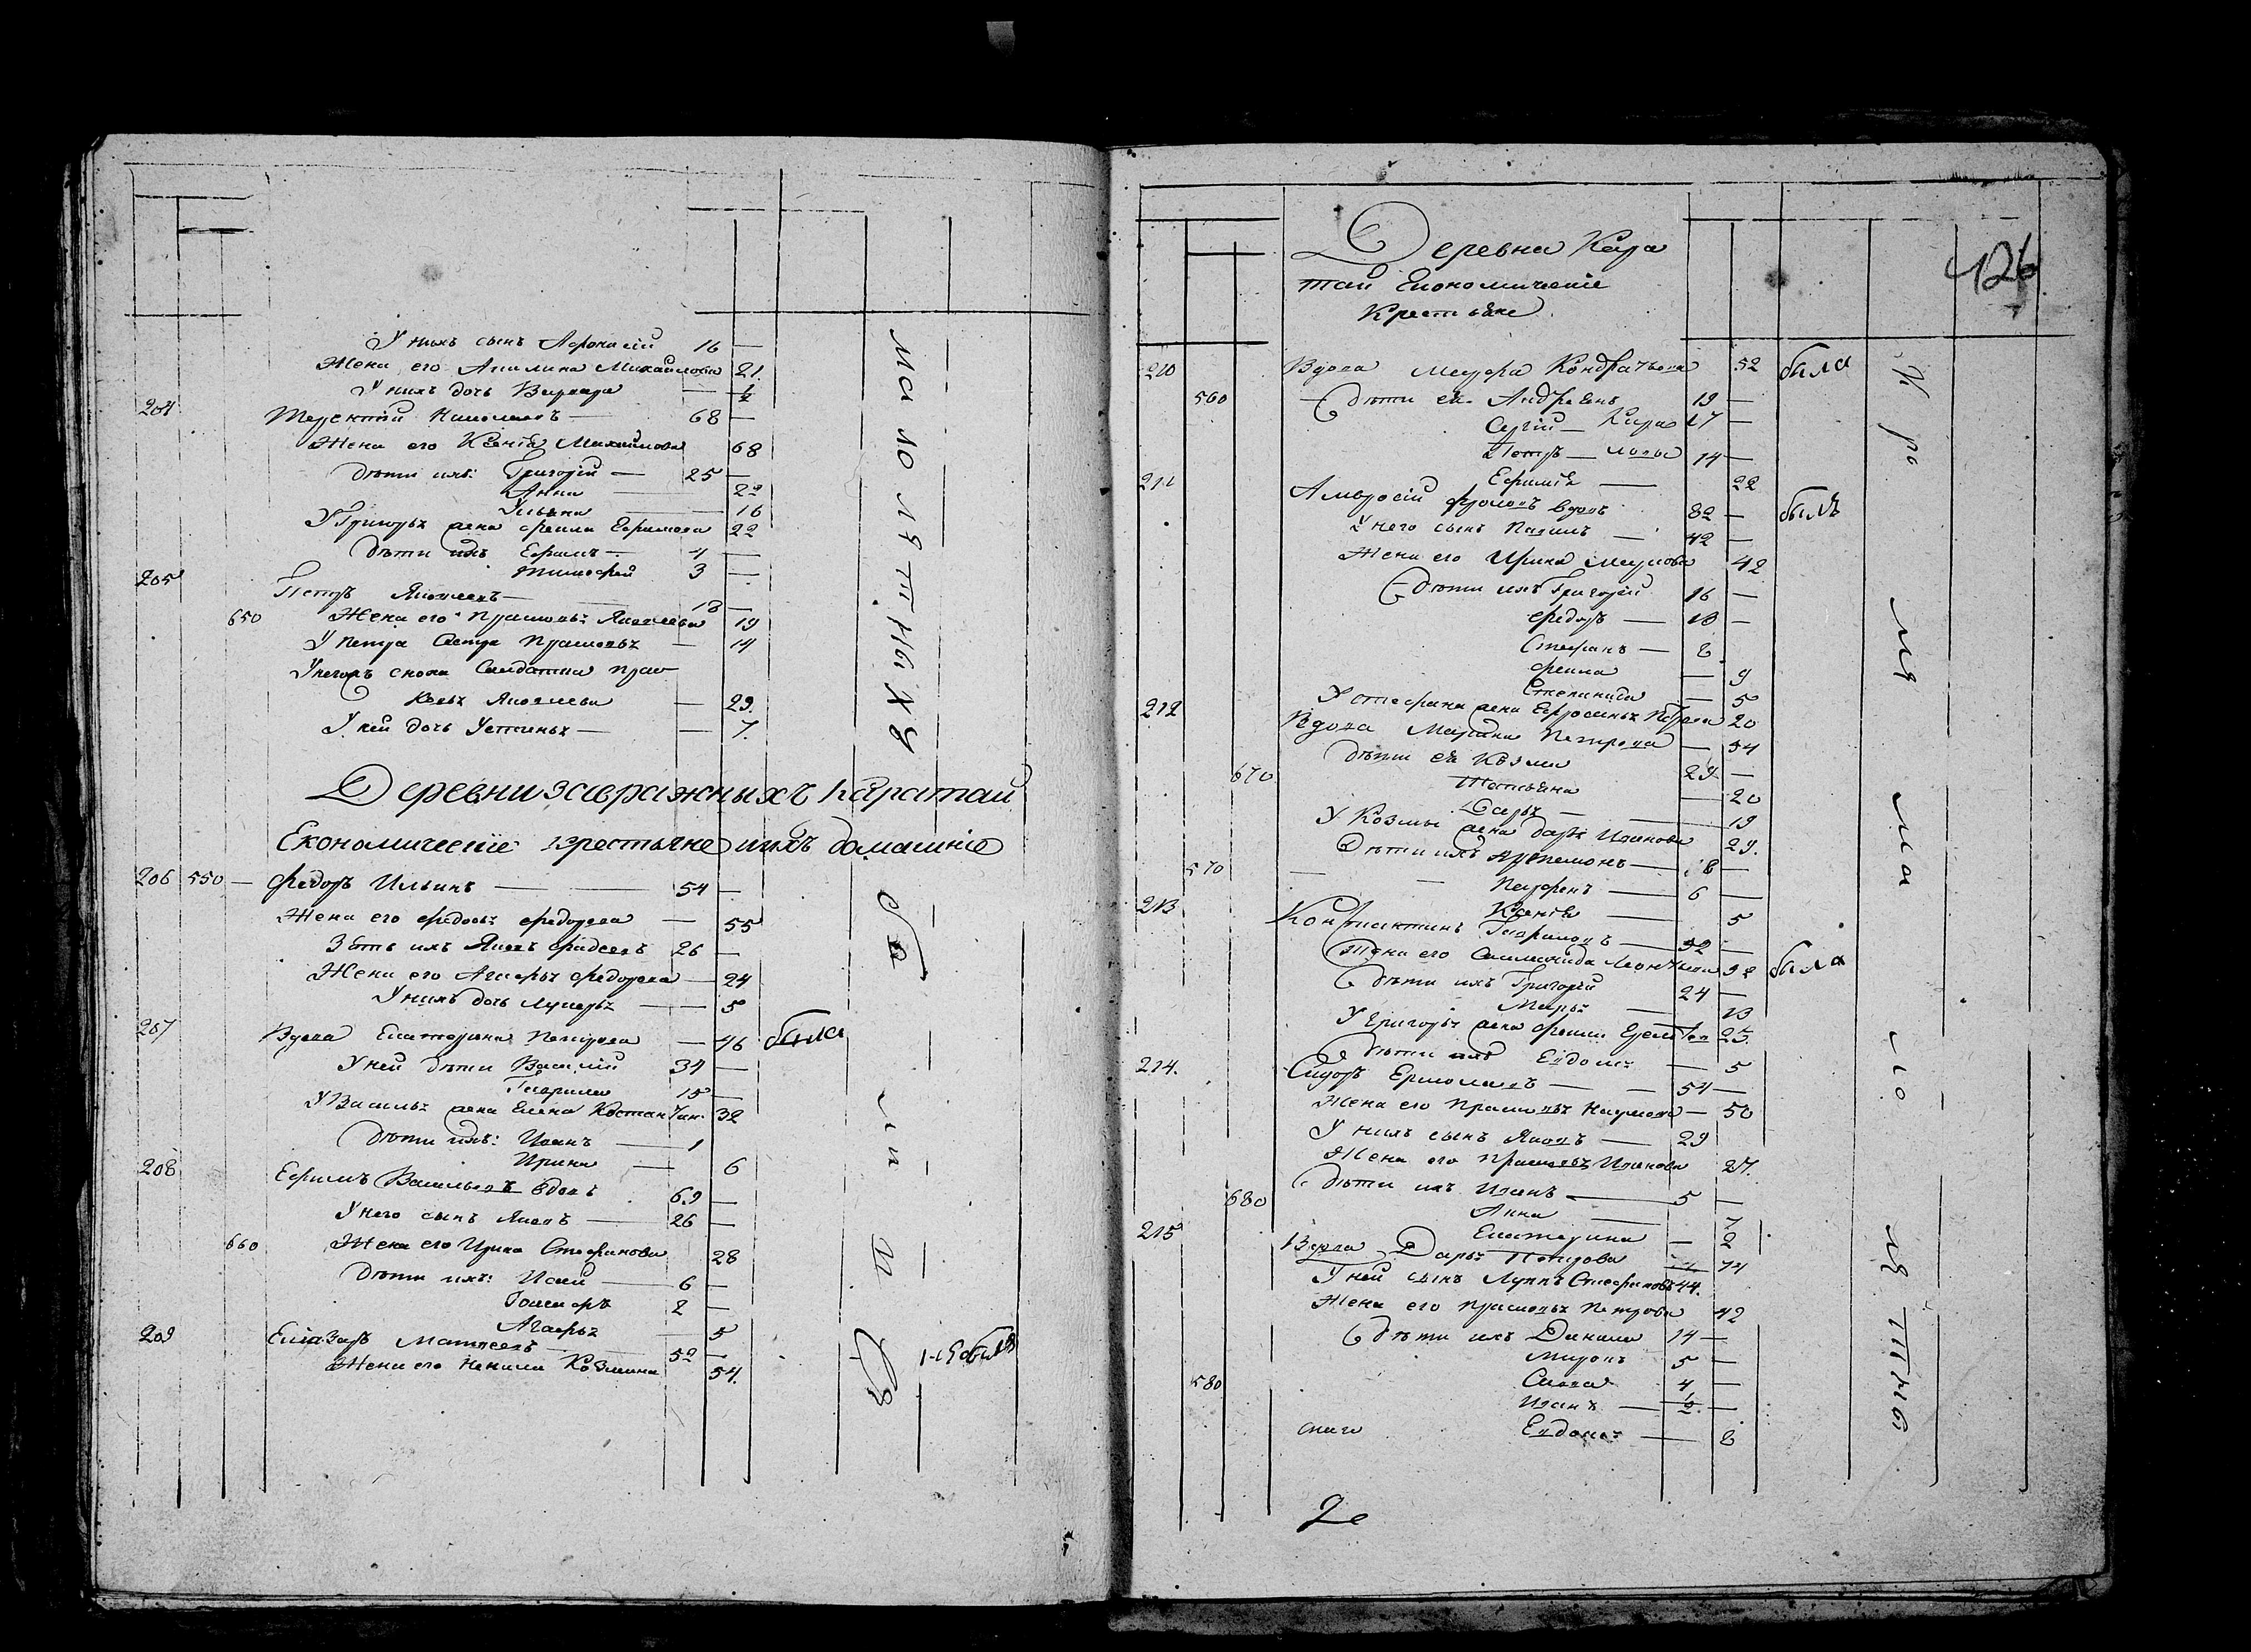 У нихъ сынъ Афонасій 16 —
Жена его Акилина Михаилова 21
У нихъ дочь Варвара — ½
204 Терентій 68 —
Жена его Ксенія Михаилова 68
дѣти ихъ: Григорій — 25 —
Анна 22
Ульяна 16
У Григорья жена Фекла Ефимова 22
дѣти ихъ Ефимъ — 4 —
Тимофей 3 —
205 Петръ Яковлевъ — 18 —
650 Жена его Прасковья Яковлева 19
У Петра сестра Прасковья — 14
У негожъ сноха Салдатка Прас
ковья Яковлева — 29.
У ней дочь Устинья — — 7.
малолятныхъ
Деревни завражныхъ Каратаи
Економическіе крестьяне и ихъ домашніе
206 550 — Федоръ Ильинъ — 54 —
Жена его Федосья Федорова — 55
Зять ихъ Яковъ 26 —
Жена его Агафья Федорова — 24
У нихъ дочь Лукерья — 5
207 Вдова Екатерина Петрова — 46 была
У ней дѣти Василій 34 —
Гаврила 15 —
У Василья жена Елена Костантин: 32
дѣти ихъ: Иванъ — 1
Ирина — 6
208 Ефимъ Васильевъ вдовъ 69 —
У него сынъ Яковъ — 26 —
660 Жена его Ирина Стефанова 28
дѣти ихъ: Исаи — 6 —
2 —
Агафья 5
209 Елиазаръ Матвеевъ — 52 —
Жена его Ненила Козмина 54.
426
Деревна Кара
таи Економическіе
Крестьяне
210 Вдова Марфа Кондратьева 52 была
560 дѣти ея Андреянъ 19 —
Сергій — Кира 17 —
Петръ — ловы 14 —
Ефимія — 22
211 Амвросій Фроловъ вдовъ 82 — былъ
У него сынъ — 42 —
Жена его Ирина Наумова 42
дѣти ихъ Григорій 16 —
Федоръ — 10 —
Стефанъ — 8
Фекла — 9
Степанида — 5
У Стефана жена Ефросинья 20
212 Вдова Марина Петрова — 54
дѣти ея Козма 29 —
670 Татьяна — 20
Дарья — 19
У Козмы жена Дарья Иванова 29.
570 дѣти ихъ Артемонъ — 8 —
Парфенъ — 6 —
Ксенія — 5
213 Константинъ Гавриловъ — 52 —
Жена его Соломонида Леонтьева 52 была
дѣти ихъ Григорій 24 —
Марья 13
У Григорья жена Фекла 25.
дѣти ихъ Евдокія — 5
214. Сидоръ Ермолаевъ — 54 —
Жена его Прасковья Наумова — 50
У нихъ сынъ Яковъ — 29
Жена его Прасковья Иванова 27.
680 дѣти ихъ Иванъ — 5 —
Анна — 7
Екатерина — 2
215 Вдова Дарья 74
У ней сынъ Лукъ Стефановъ 44.
Жена его Прасковья Петрова 42
дѣти ихъ Данила 14 —
Миронъ 5 —
580 Савва 4 —
Иванъ — ½ —
Евдокія — 8